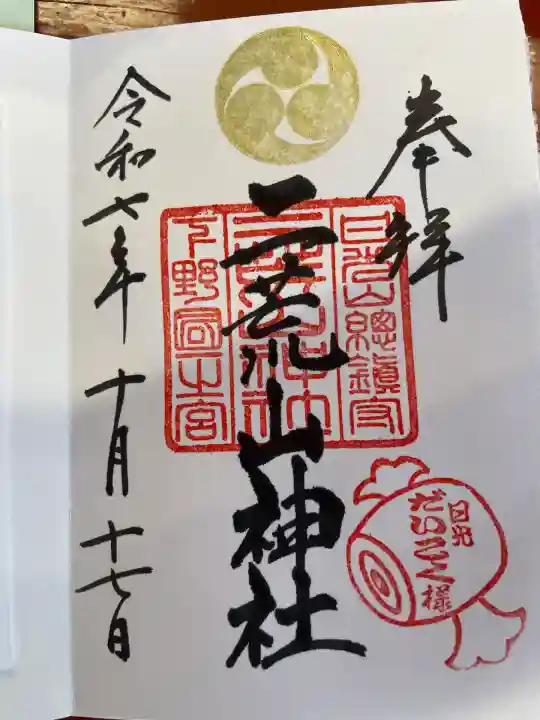 奉拝
日光山総鎮守
二荒山神社
二荒山神社
下野國一之宮
令和七年 十月 十七日
日光
だいこく様